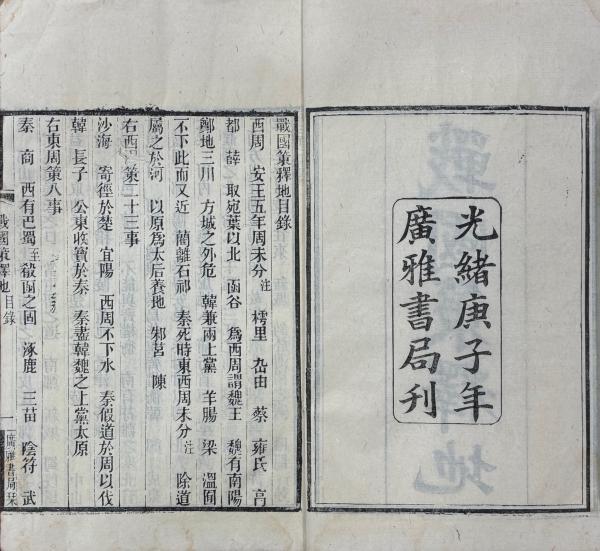 光緒庚子年
廣雅書局刊
戰國策釋地目錄
西周 安王五年周未分注 樗里 厹由 蔡 雍氏 高
都 薛 取宛葉以北 函谷 爲西周謂魏王 魏有南陽
鄭地三川 方城之外危 韓兼兩上黨 羊腸 梁 溫囿
不下此而又近 藺離石祁 秦死時東西周未分注 除道
屬之於河 以原爲太后養地 邾莒 陳
右西 策二十三事
沙海 寄徑於楚 宜陽 西周不下水 秦假道於周以伐
韓 長子 公東收寶於秦 秦盡韓魏之上黨太原
右東周策八事
秦 商 西有巴蜀至殽函之固 涿鹿 三苗 陰符 武
戰國策釋地目錄 一 廣雅書局栞